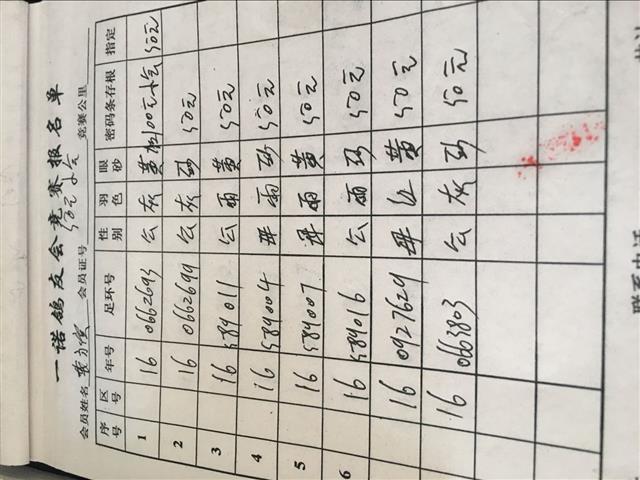 一诺鸽友会竞赛报名单
会员姓名 会员证号 50元大会 竞赛公里
序号 区号 年号 足环号 性别 羽色 眼砂 密码条存根 指定
1 16 0662693 公 灰 黄 100元大会 50元
2 16 0662699 公 灰 砂 50元
3 16 589011 公 雨 黄 50元
4 16 589004 母 雨 砂 50元
5 16 589007 母 雨 黄 50元
6 16 589016 公 雨 砂 50元
16 0927629 母 红 黄 50元
16 0663803 公 灰 砂 50元
联系电话